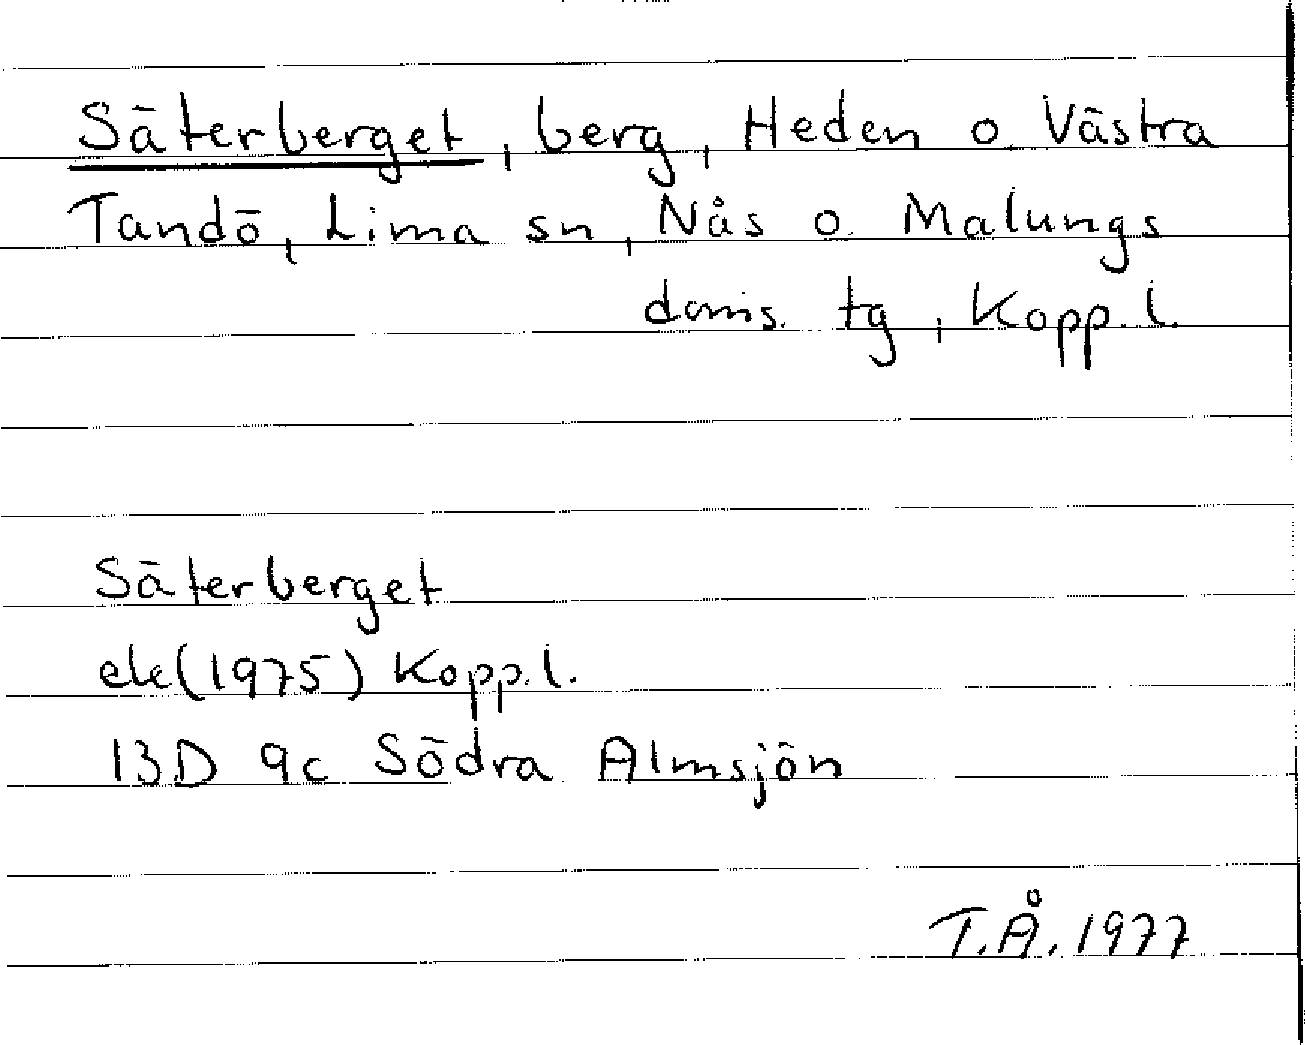 Säterberget, berg, Heden o. Västra
Tandö, Lima sn, Nås o. Malungs
doms. tg, Kopp. l.
Säterberget
ek (1975) Kopp. l.
13D 9c Södra Almsjön
T.Å. 1977